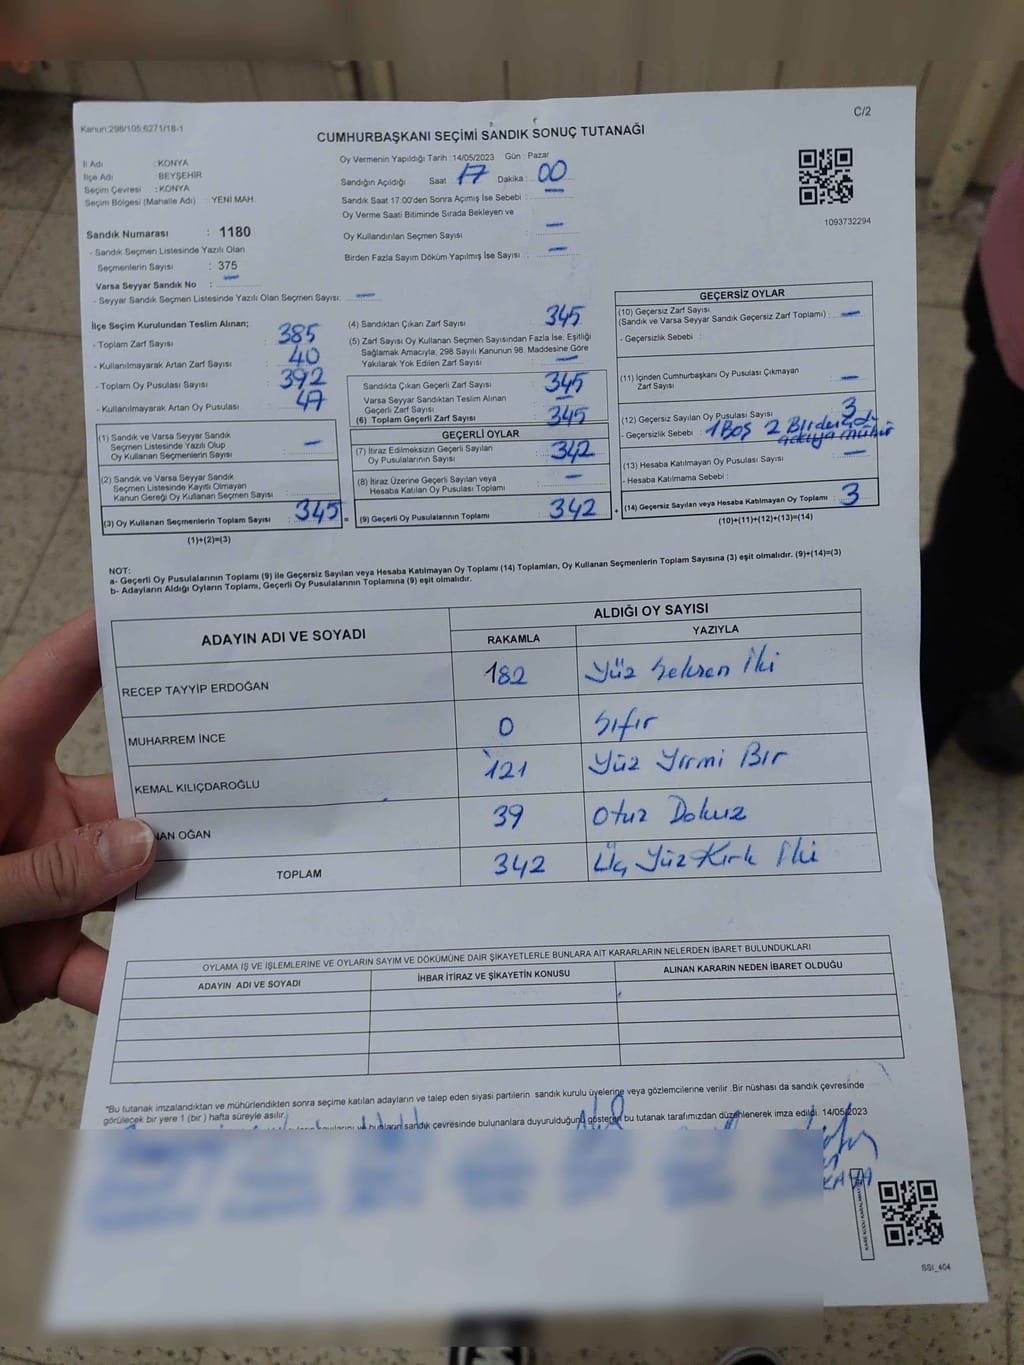 Kanun:298/105;6271/18-1
C/2
CUMHURBAŞKANI SEÇİMİ SANDIK SONUÇ TUTANAĞI
İl Adı : KONYA
İlçe Adı : BEYŞEHİR
Seçim Çevresi : KONYA
Seçim Bölgesi (Mahalle Adı) : YENİ MAH.
Sandık Numarası : 1180
- Sandık Seçmen Listesinde Yazılı Olan
Seçmenlerin Sayısı : 375
Varsa Seyyar Sandık No : —
- Seyyar Sandık Seçmen Listesinde Yazılı Olan Seçmen Sayısı: —
Oy Vermenin Yapıldığı Tarih : 14/05/2023 Gün : Pazar
Sandığın Açıldığı Saat : 17 Dakika : 00
Sandık Saat 17:00'den Sonra Açılmış İse Sebebi : —
Oy Verme Saati Bitiminde Sırada Bekleyen ve
Oy Kullandırılan Seçmen Sayısı —
Birden Fazla Sayım Döküm Yapılmış İse Sayısı : —
1093732294
İlçe Seçim Kurulundan Teslim Alınan;
- Toplam Zarf Sayısı : 385
- Kullanılmayarak Artan Zarf Sayısı : 40
- Toplam Oy Pusulası Sayısı : 392
- Kullanılmayarak Artan Oy Pusulası : 47
(1) Sandık ve Varsa Seyyar Sandık
Seçmen Listesinde Yazılı Olup
Oy Kullanan Seçmenlerin Sayısı : —
(2) Sandık ve Varsa Seyyar Sandık
Seçmen Listesinde Kayıtlı Olmayan
Kanun Gereği Oy Kullanan Seçmen Sayısı :
(3) Oy Kullanan Seçmenlerin Toplam Sayısı : 345 =
(1)+(2)=(3)
(4) Sandıktan Çıkan Zarf Sayısı : 345
(5) Zarf Sayısı Oy Kullanan Seçmen Sayısından Fazla İse, Eşitliği
Sağlamak Amacıyla; 298 Sayılı Kanunun 98. Maddesine Göre
Yakılarak Yok Edilen Zarf Sayısı : —
Sandıkta Çıkan Geçerli Zarf Sayısı : 345
Varsa Seyyar Sandıktan Teslim Alınan
Geçerli Zarf Sayısı : —
(6) Toplam Geçerli Zarf Sayısı : 345
GEÇERLİ OYLAR
(7) İtiraz Edilmeksizin Geçerli Sayılan
Oy Pusulalarının Sayısı : 342
(8) İtiraz Üzerine Geçerli Sayılan veya
Hesaba Katılan Oy Pusulası Toplamı : —
(9) Geçerli Oy Pusulalarının Toplamı : 342 +
GEÇERSİZ OYLAR
(10) Geçersiz Zarf Sayısı
(Sandık ve Varsa Seyyar Sandık Geçersiz Zarf Toplamı) : —
- Geçersizlik Sebebi :
(11) İçinden Cumhurbaşkanı Oy Pusulası Çıkmayan
Zarf Sayısı : —
(12) Geçersiz Sayılan Oy Pusulası Sayısı : 3
- Geçersizlik Sebebi : 1 Boş 2 Birden çok
adaya mühür
(13) Hesaba Katılmayan Oy Pusulası Sayısı : —
- Hesaba Katılmama Sebebi :
(14) Geçersiz Sayılan veya Hesaba Katılmayan Oy Toplamı : 3
(10)+(11)+(12)+(13)=(14)
NOT:
a- Geçerli Oy Pusulalarının Toplamı (9) ile Geçersiz Sayılan veya Hesaba Katılmayan Oy Toplamı (14) Toplamları, Oy Kullanan Seçmenlerin Toplam Sayısına (3) eşit olmalıdır. (9)+(14)=(3)
b- Adayların Aldığı Oyların Toplamı, Geçerli Oy Pusulalarının Toplamına (9) eşit olmalıdır.
ADAYIN ADI VE SOYADI ALDIĞI OY SAYISI
RAKAMLA YAZIYLA
RECEP TAYYİP ERDOĞAN 182 Yüz Seksen İki
MUHARREM İNCE 0 Sıfır
KEMAL KILIÇDAROĞLU 121 Yüz Yirmi Bir
NAN OĞAN 39 Otuz Dokuz
TOPLAM 342 Üç Yüz Kırk İki
OYLAMA İŞ VE İŞLEMLERİNE VE OYLARIN SAYIM VE DÖKÜMÜNE DAİR ŞİKAYETLERLE BUNLARA AİT KARARLARIN NELERDEN İBARET BULUNDUKLARI
ADAYIN ADI VE SOYADI İHBAR İTİRAZ VE ŞİKAYETİN KONUSU ALINAN KARARIN NEDEN İBARET OLDUĞU
*Bu tutanak imzalandıktan ve mühürlendikten sonra seçime katılan adayların ve talep eden siyasi partilerin sandık kurulu üyelerine veya gözlemcilerine verilir .Bir nüshası da sandık çevresinde
görülecek bir yere 1 (bir ) hafta süreyle asılır.
bunların sandık çevresinde bulunanlara duyurulduğunu gösteren bu tutanak tarafımızdan düzenlenerek imza edildi. 14/05/2023
SSI_404